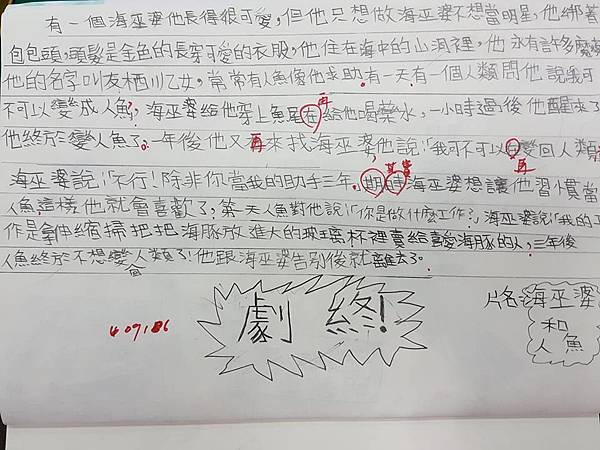 有一個海巫婆他長得很可愛，但他只想做海巫婆不想當明星，他綁著
包包頭，頭髮是金色的長穿可愛的衣服，他住在海中的山洞裡，他永有許多魔藥
他的名字叫友栖川乙女，常常有人魚像他求助。有一天有一個人類問他說我可
不可以變成人魚？海巫婆給他穿上魚尾在再給他喝藥水，一小時過後他醒來了
他終於變人魚了。一年後他又再來找海巫婆，他說！「我可不可以在變回人類
再
海巫婆說！「不行！除非你當我的助手三年。期時其實海巫婆想讓他習慣當
人魚這樣他就會喜歡了？第一天人魚對他說！「你是做什麼工作？」海巫婆說！「我的工
作是拿伸縮掃把把海豚放進大的玻璃杯裡賣給喜愛海豚的人，三年後
人魚終於不想變回人類了！他跟海巫婆告別後就離去了。
劇 終！
片名海巫婆
和
人魚
409186